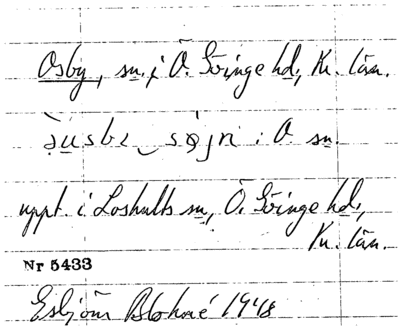 Osby, sn. i Ö. Göinge hd, Kr. län.
i O sn.
uppt. i Loshults sn, Ö. Göinge hd,
Kr. län.
Nr 5433
Esbjörn 1948